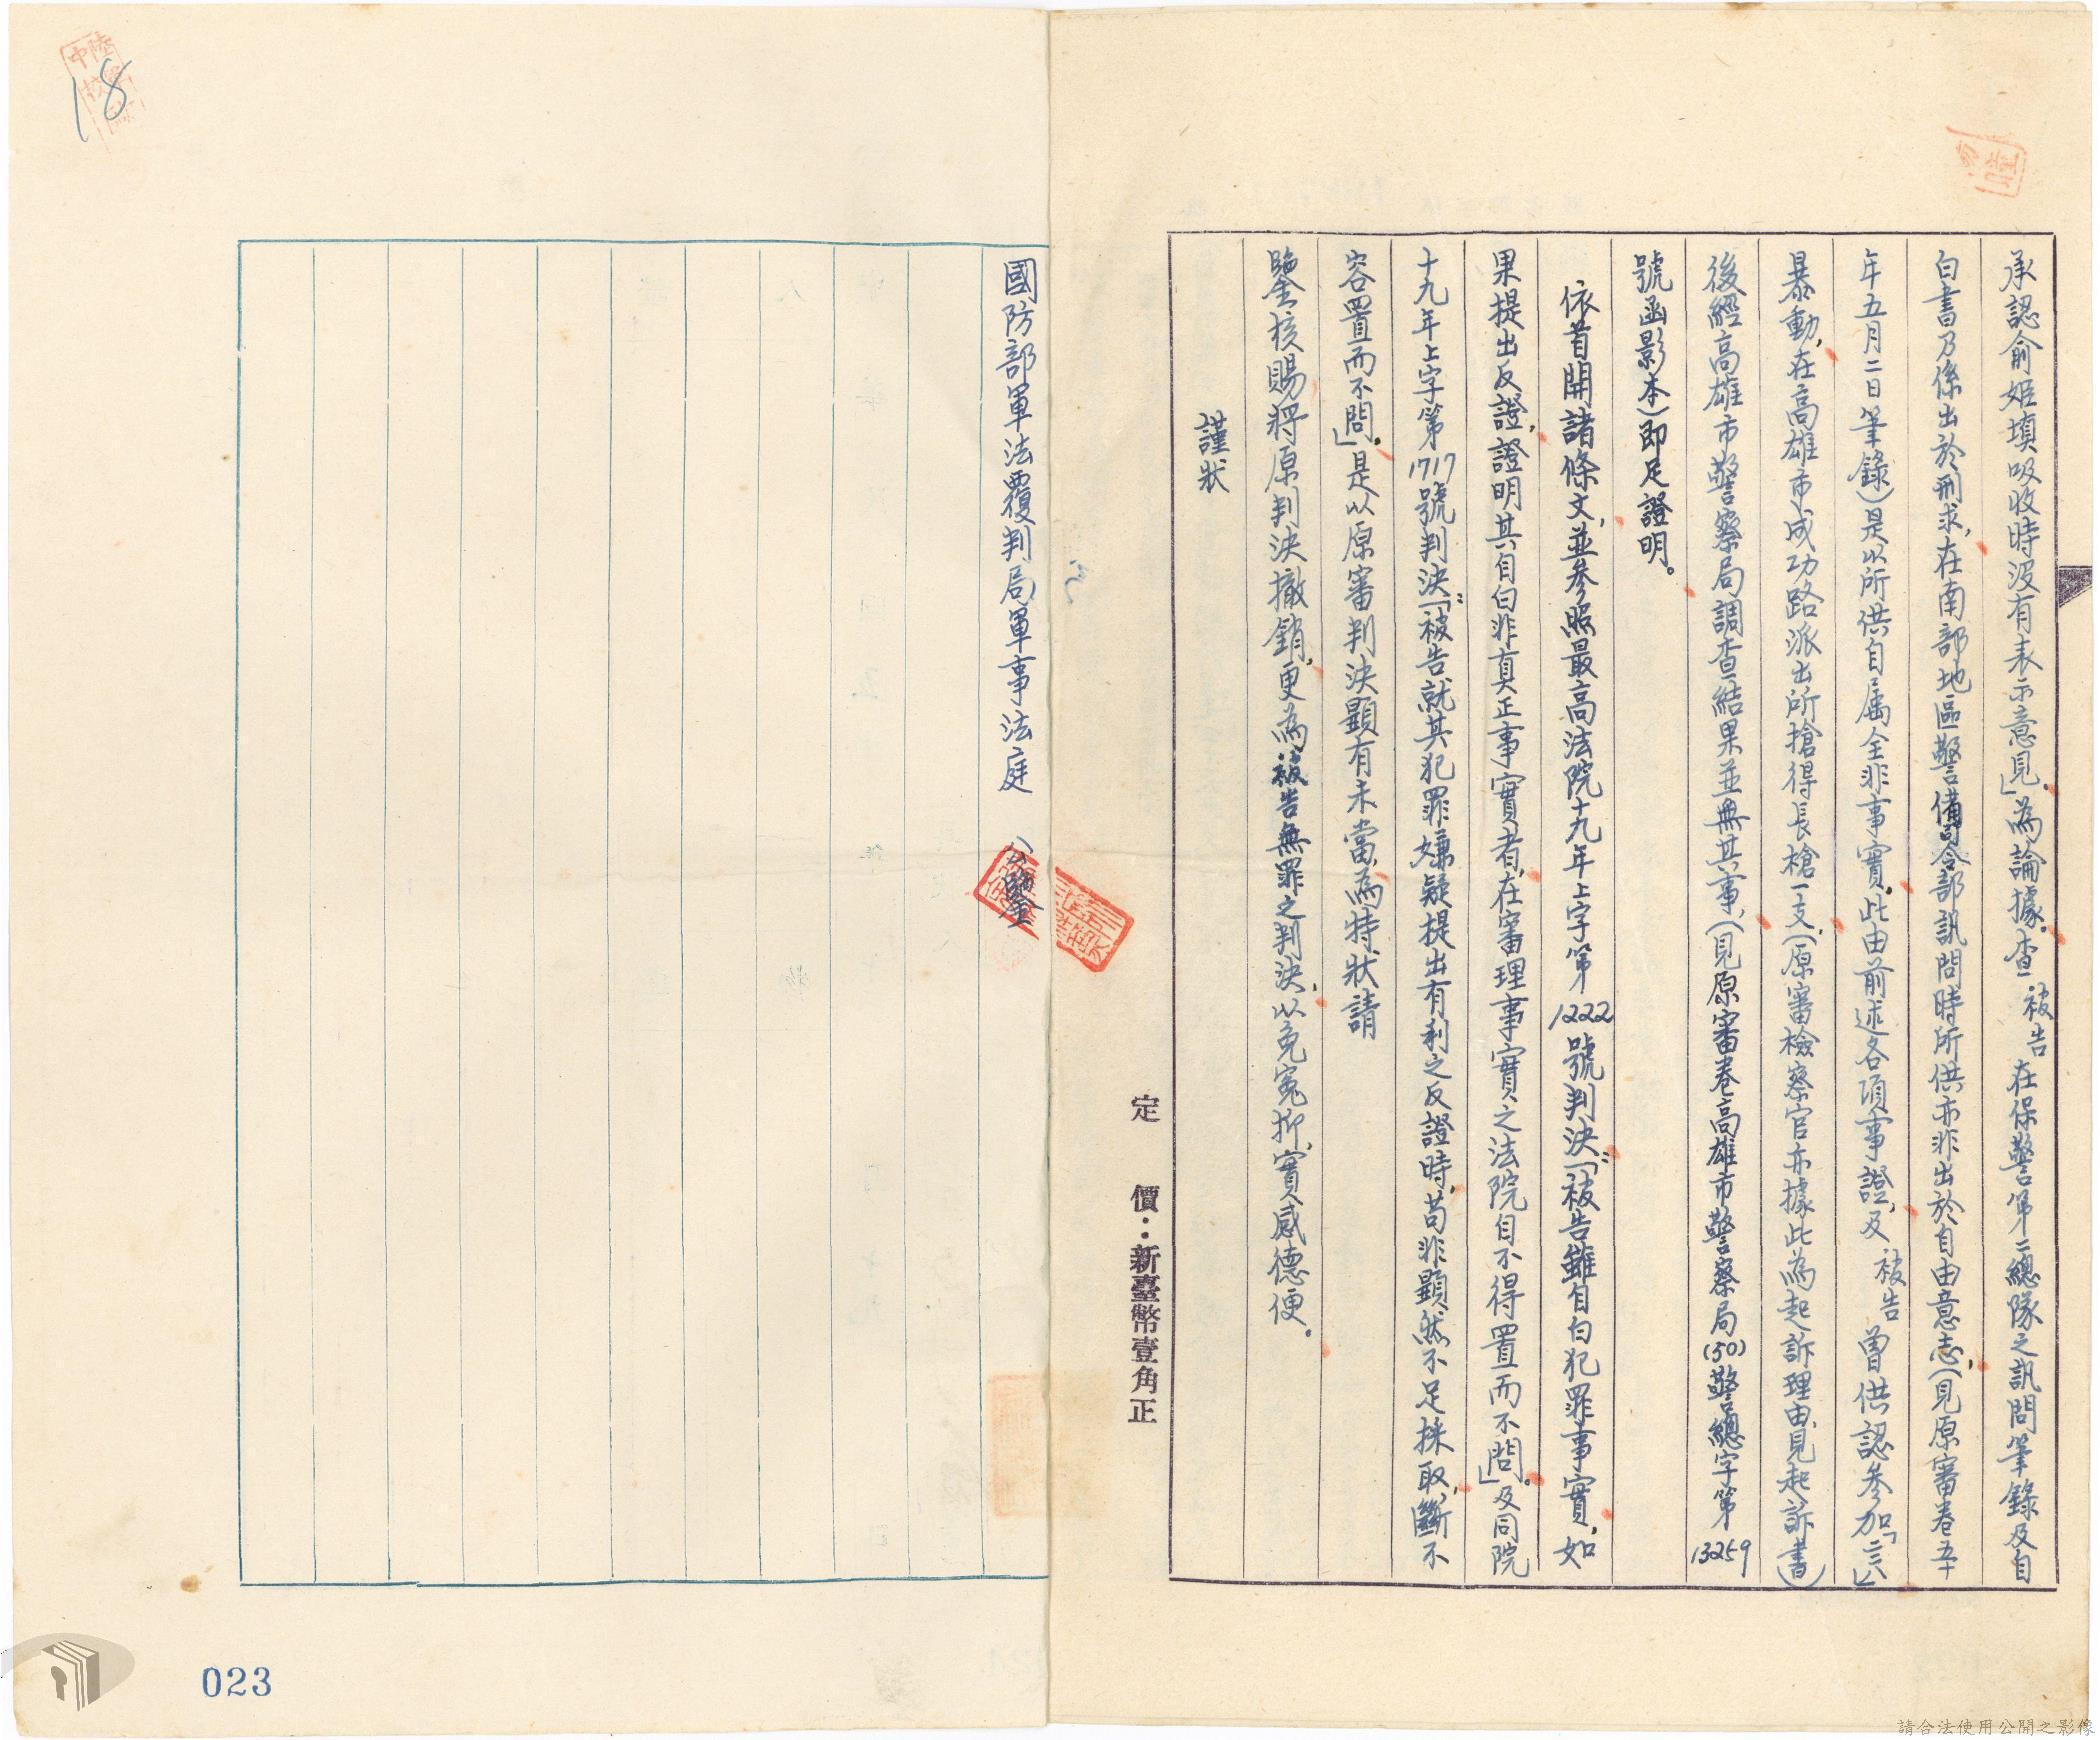 承認俞姬填吸收時沒有表示意見」為論據。查被告在保警第二總隊之訊問筆錄及自
白書乃係出於刑求,在南部地區警備司令部訊問時所供亦非出於自由意志,(見原審卷五十
年五月二日筆錄)是以所供自屬全非事實,此由前述各項事證,及被告曾供認參加「二二八」
暴動,在高雄市成功路派出所搶得長槍一支,(原審檢察官亦據此為起訴理由,見起訴書)
後經高雄市警察局調查結果並無其事,(見原審卷高雄市警察局(50)警總字第13259
號函影本)即足證明。
依首開諸條文,並參照最高法院十九年上字第1222號判決:「被告雖自白犯罪事實,如
果提出反證,證明其自白非真正事實者,在審理事實之法院自不得置而不問」。及同院
十九年上字第1717號判決:「被告就其犯罪嫌疑提出有利之反證時,苟非顯然不足採取,斷不
容置而不問」。是以原審判決顯有未當,為特狀請
鑒核賜將原判決撤銷,更為被告無罪之判決,以免冤抑,實感德便。
謹狀
定 價:新臺幣壹角正
國防部軍法覆判局軍事法庭 公鑒
18
023
請合法使用公開之影像